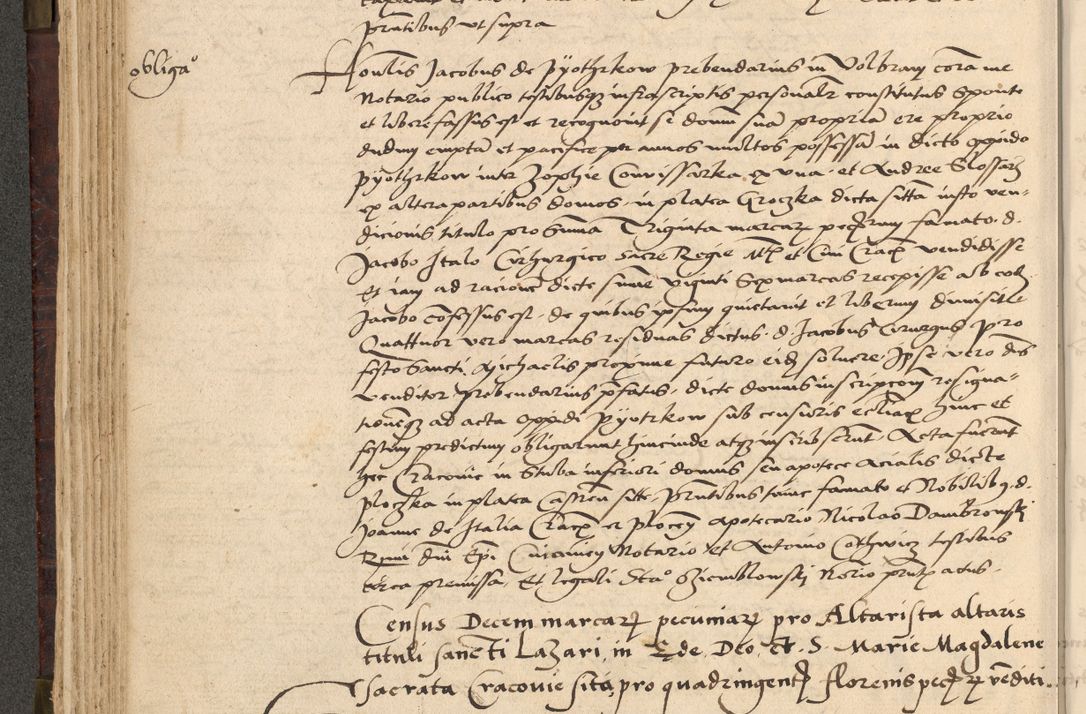 pntibus ut supra
obligao
Honlis Jacobus de Pyothrkow prebendarius in Volbram coram me
Notario publico testibusqz infrascriptis personalr constitutus sponte
et libere fassus est et recognovit se domum suam propriam ere proprio
dudum emptam et pacifice per annos multos possessam in dicto oppido
Pyothrkow inter Zophie Convissarka ex una et Andree Slossarz
ex altera partibus domos in platea Groczka dicta sittam iusto ven=
dicionis titulo pro summa Triginta marcarz pecrum famato d.
Jacobo Italo Cirhurgico sacre Regie Mtis et Civi Cracx vendidisse
Et iam ad racionem dicte summe viginti sex marcas recepisse ab eodz
Jacobo confessus est. de quibus ipsum quietavit et liberum dimisit
Quattuor vero marcas residuas dictus d. Jacobus Cirurgus pro
festo Sancti Michaelis proxime futuro eidz solvere. Ipse vero dns
venditor prebendarius pfatus dicte domus inscripcom resigna=
tionemqz ad acta oppidi Pyotrkow sub censuris eccliacz hinc et
festum predictum obligarunt hincinde atqz inscripserunt. Acta fuerunt
hec Cracovie in Stuba inferiori domus seu apotece dicte
Ploczka in platea Castren sitte. Pntibus tunc famato et Nobilibus d.
Joanne de Italia Cracx et Plocen apotecario Nicolao Dambrowski
Rmi dni Epi Notario et Antonio testibus
circa premissa. Et legali Stao Ziemblowski Norio pntx actus.
Census Decem marcarz pecuniarz pro Altarista altaris
tituli sancti Lazari, in Ede. Deo. et. S. Marie Magdalene
sacrata Cracovie sita, pro quadringentz florenis pecz rz venditi.